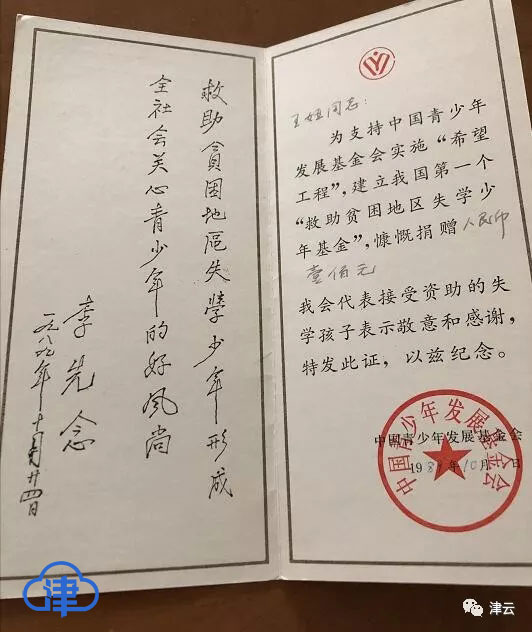 救助貧困地區失學少年形成
全社会关心青少年的好风尚
李先念
一九八九年十月廿四日
王妞同志：
为支持中国青少年
发展基金会实施“希望
工程”，建立我国第一个
“救助贫困地区失学少
年基金”，慷慨捐赠人民币
壹佰元
我会代表接受资助的失
学孩子表示敬意和感谢，
特发此证，以兹纪念。
中国青少年发展基金会
中国青少年发展基金会
198 年10月 日
津
津云